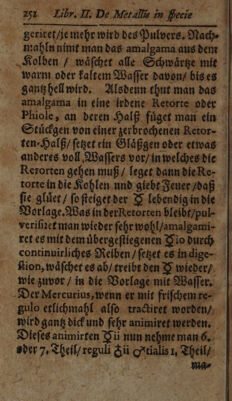 252 Libr. II. De Metallis in specie
geriret/je mehr wird des Pulvers. Nach-
mahln nimt man das amalgama aus dem
Kolben / wäschet alle Schwärtze mit
warm oder kaltem Wasser davon/ bis es
gantz hell wird. Alsdenn thut man das
amalgama in eine irdene Retorte oder
Phiole, an deren Halß füget man ein
Stückgen von einer zerbrochenen Retor-
ten-Halß/ setzet ein Gläßgen oder etwas
anderes voll Wassers vor/ in welches die
Retorten gehen muß/ leget dann die Re-
torte in die Kohlen und giebt Feuer/daß
sie glüet/ so steiget der ☿ lebendig in die
Vorlage. Was in der Retorten bleibt/pul-
verisiret man wieder sehr wohl/amalgami-
ret es mit dem übergestiegenen ☿io durch
continuirliches Reiben/ setzet es in dige-
stion, wäschet es ab/ treibt den ☿ wieder/
wie zuvor / in die Vorlage mit Wasser.
Der Mercurius, wenn er mit frischem re-
gulo etlichmahl also tractiret worden/
wird gantz dick und sehr animiret werden.
Dieses animirten ☿ii nun nehme man 6.
oder 7. Theil/ reguli ♁ii ♂tialis 1. Theil/
ma-